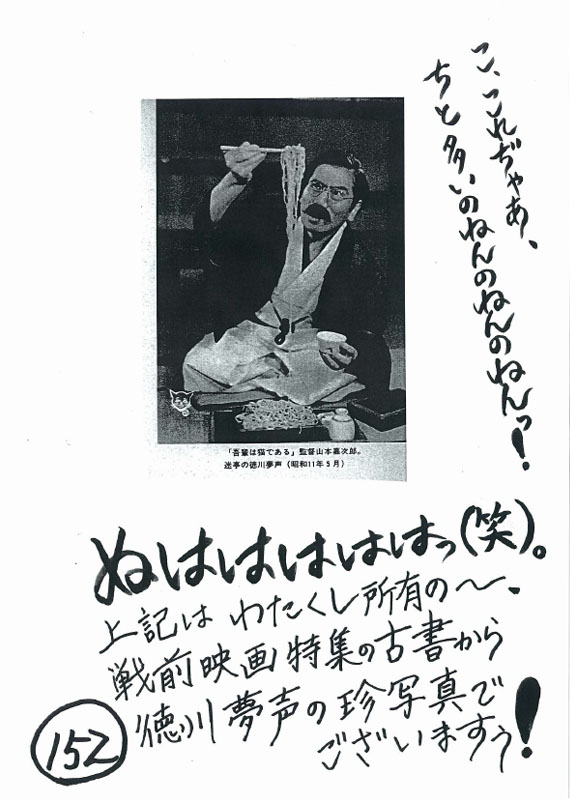 こ、これぢゃあ、
ちと多いのねんのねんのねんっ!
「吾輩は猫である」監督山本嘉次郎。
迷亭の徳川夢声（昭和11年5月）
ぬはははははっ(笑)。
上記は わたくし所有の〜、
戦前映画特集の古書から
徳川夢声の珍写真で
ございますぅ!
152